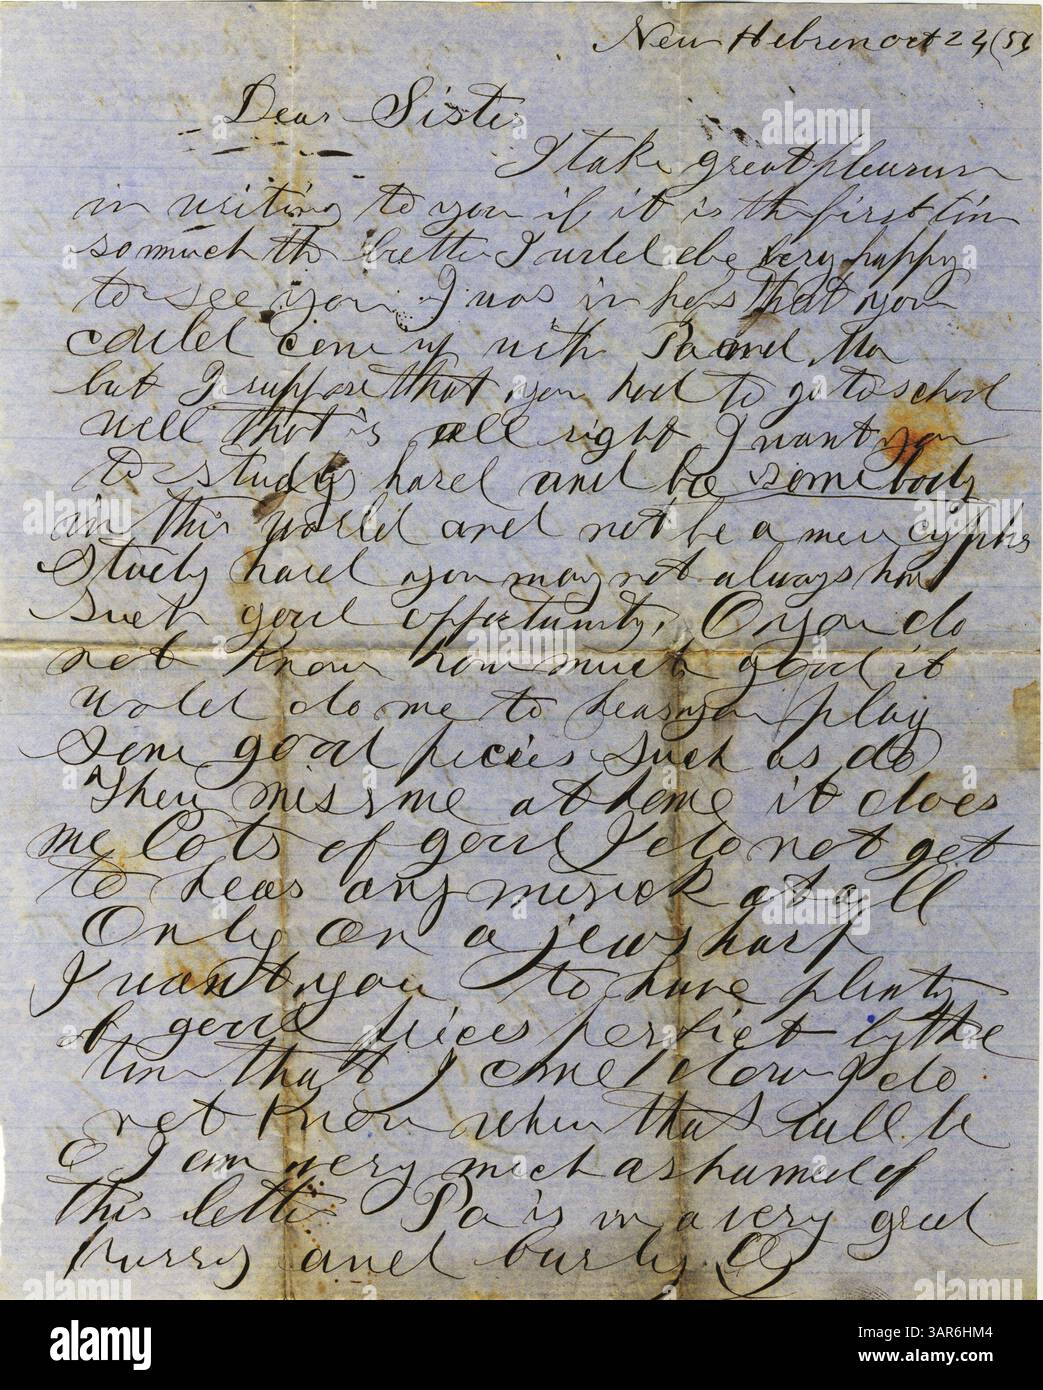 New Hebren oct 24 (54
Dear Sister
I take great pleasure
in writing to you if it is the first tim
so much the better I wold be very happy
to see you I was in hops that you
could come up with Pa and Ma
but I suppose that you had to go to school
well that is all right I want you
to study hard and be somebody
in this world and not be a mere cypher
Study hard you may not always have
such good opportunity. O you do
not know how much good it
wold do me to hear you play
some good pecies such as do
They miss me at home it does
me lots of good I do not get
to hear any musick at all
Only on a jewsharp
I want you to have plenty
of good pieces perfict by the
tim that I come down I do
not know when that will be
I am very much ashamed of
this letter Pa is in a very great
hurry and burly
alamy
Image ID: 3AR6HM4
www.alamy.com